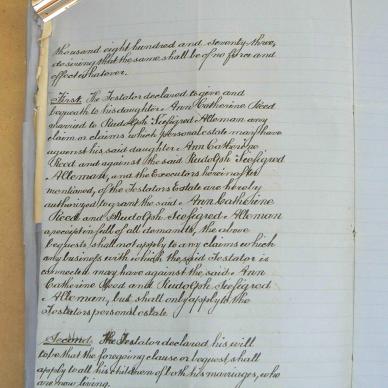 thousand eight hundred and seventy three,
desiring that the same shall be of no force and
effect whatever.
First. The Testator declared to give and
bequeath to his daughter Ann Catherine Reed
married to Rudolph Seefigred Alleman any
claim or claims which personal estate may have
against his said daughter Ann Catherine
Reed and against the said Rudolph Seefigred
Alleman, and the Executors hereinafter
mentioned, of the Testators Estate are hereby
authorized to grant the said Ann Catherine
Reed and Rudolph Seefigred Alleman
a receipt in full of all demands, the above
bequests, shall not apply to any claims which
any business with which the said Testator is
connected may have against the said Ann
Catherine Reed and Rudolph Seefigred
Alleman, but shall only apply to the
Testators personal estate.
Second. The Testator declared, his will
to be that the foregoing clause or bequest, shall
apply to all his children of both his marriages, who
are now living.